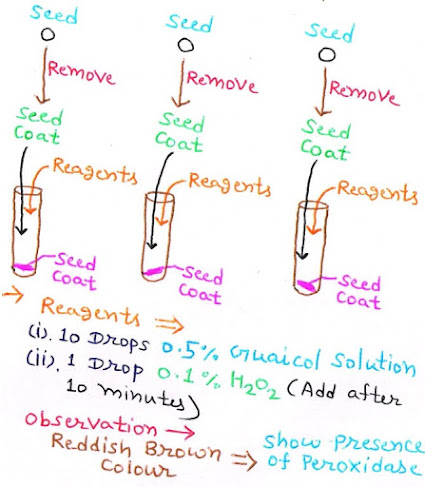 Seed Seed Seed
Remove Remove Remove
Seed Coat Seed Coat Seed Coat
Reagents Reagents Reagents
Seed Coat Seed Coat Seed Coat
→ Reagents ⇒
(i). 10 Drops 0.5% Guaicol Solution
(ii). 1 Drop 0.1% H₂O₂ (Add after
10 minutes)
Observation →
Reddish Brown ⇒ show Presence
Colour of Peroxidase